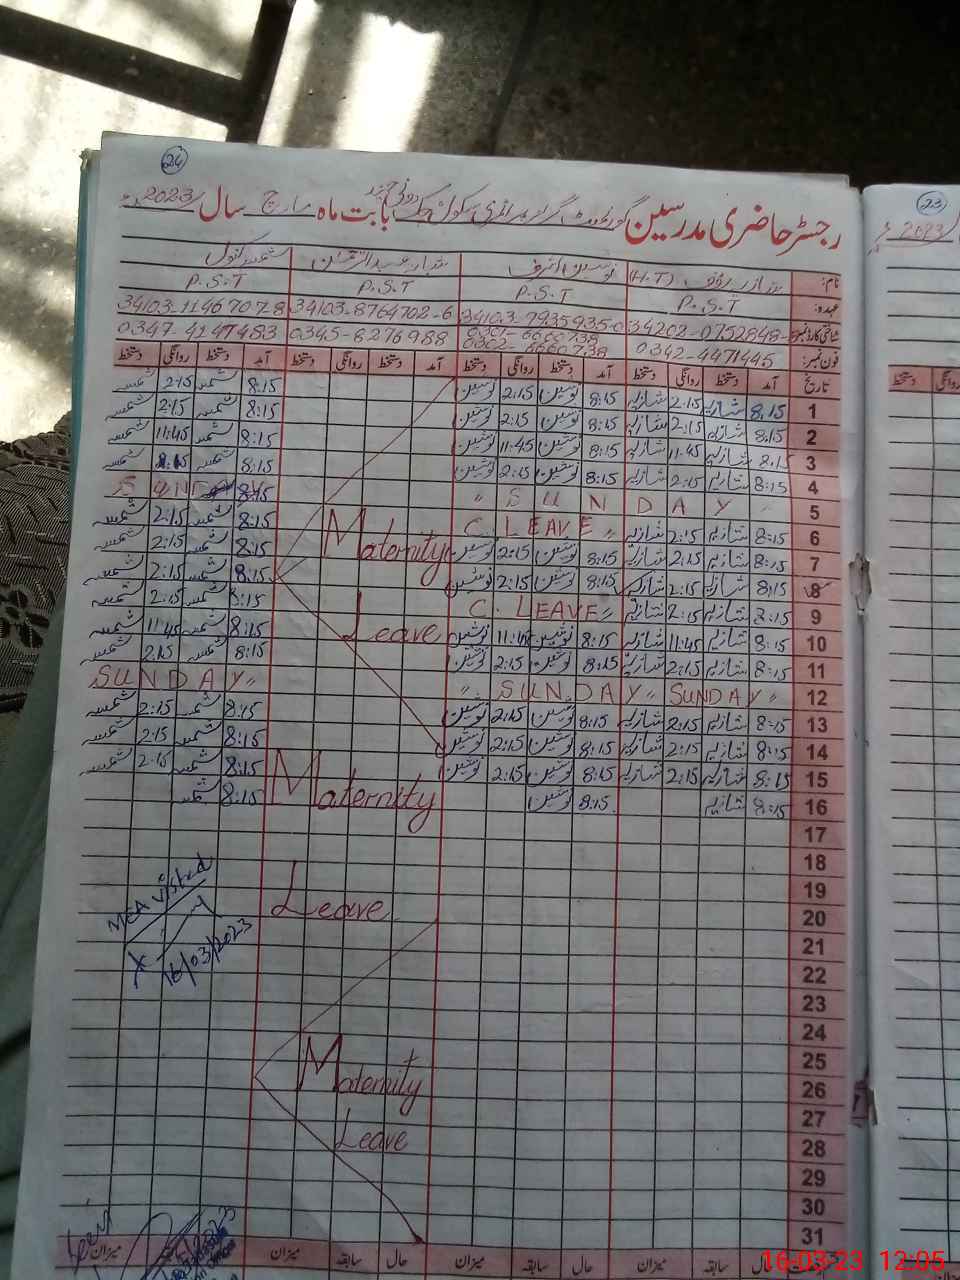 24
رجسٹر حاضری مدرسین گورنمنٹ گرلز پرائمری سکول بابت ماہ مارچ سال 2023ء
23
2023ء
نام: شازیہ رؤف (H.T) نوشین اشرف شمسہ کنول
عہدہ: P.S.T P.S.T P.S.T P.S.T
شناختی کارڈ نمبر: 34202-0752848- 34103-7935935-0 34103-8764702-6 34103-1146707-8
فون نمبر: 0342-4471445 0301-6660738 0345-6276988 0347-4147483
0302-6660738
تاریخ آمد دستخط روانگی دستخط آمد دستخط روانگی دستخط آمد دستخط روانگی دستخط آمد دستخط روانگی دستخط
دستخط روانگی
1 8:15 شازیہ 2:15 شازیہ 8:15 نوشین 2:15 نوشین 8:15 شمسہ 2:15 شمسہ
2 8:15 شازیہ 2:15 شازیہ 8:15 نوشین 2:15 نوشین 8:15 شمسہ 2:15 شمسہ
3 8:15 شازیہ 11:45 شازیہ 8:15 نوشین 11:45 نوشین 8:15 شمسہ 11:45 شمسہ
4 8:15 شازیہ 2:15 شازیہ 8:15 نوشین 2:15 نوشین 8:15 شمسہ شمسہ
5 " SUNDAY SUND 8:15
6 8:15 شازیہ 2:15 شازیہ C. LEAVE " 8:15 شمسہ 2:15 شمسہ
7 8:15 شازیہ 2:15 شازیہ 8:15 نوشین 2:15 نوشین Maternity 8:15 شمسہ 2:15 شمسہ
8 8:15 شازیہ 2:15 شازیہ 8:15 نوشین 2:15 نوشین 8:15 شمسہ 2:15 شمسہ
9 8:15 شازیہ 2:15 شازیہ C. LEAVE " 8:15 شمسہ 2:15 شمسہ
10 8:15 شازیہ 11:45 شازیہ 8:15 نوشین 11:45 نوشین Leave 8:15 شمسہ 11:45 شمسہ
11 8:15 شازیہ 2:15 شازیہ 8:15 نوشین 2:15 نوشین 8:15 شمسہ 2:15 شمسہ
12 " SUNDAY " SUNDAY " SUNDAY "
13 8:15 شازیہ 2:15 شازیہ 8:15 نوشین 2:15 نوشین 8:15 شمسہ 2:15 شمسہ
14 8:15 شازیہ 2:15 شازیہ 8:15 نوشین 2:15 نوشین 8:15 شمسہ 2:15 شمسہ
15 8:15 شازیہ 2:15 شازیہ 8:15 نوشین 2:15 نوشین 8:15 شمسہ 2:15 شمسہ
16 8:15 شازیہ 8:15 نوشین Maternity 8:15 شمسہ
17
18
19
20 Leave
MEA visited
16/03/2023
21
22
23
24
25
26 Maternity
27
28 Leave
29
30
31
حال سابقہ میزان حال سابقہ میزان حال سابقہ میزان سابقہ میزان
16-03-23 12:05